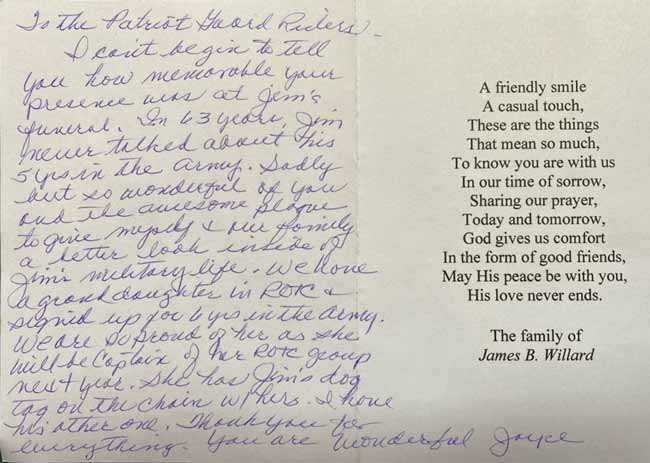 To the Patriot Guard Riders -
I can't begin to tell
you how memorable your
presence was at Jim's
funeral. In 43 years, Jim
never talked about his
5 yrs in the Army. Sadly
but so wonderful of you
and the awesome plaque
to give myself & our family
a better look inside of
Jim's military life. We have
a granddaughter in ROTC &
signed up for 6 yrs in the Army.
We are so proud of her as she
will be Captain of her ROTC group
next year. She has Jim's dog
tag on the chain w/ hers. I have
his other one. Thank you for
everything. You are wonderful Joyce
A friendly smile
A casual touch,
These are the things
That mean so much,
To know you are with us
In our time of sorrow,
Sharing our prayer,
Today and tomorrow,
God gives us comfort
In the form of good friends,
May His peace be with you,
His love never ends.
The family of
James B. Willard